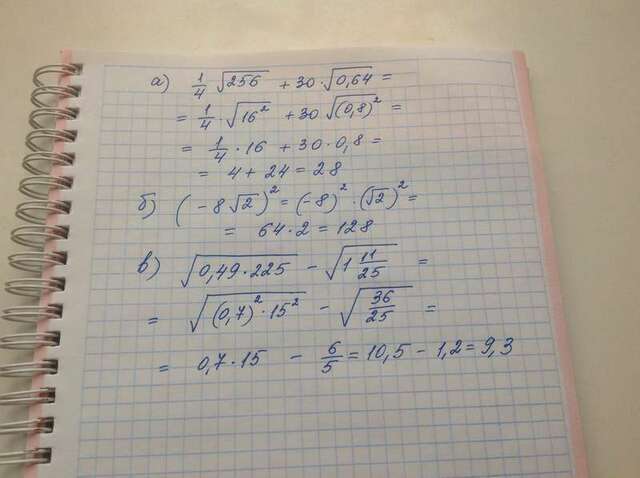 а) 1/4 √256 + 30·√0,64 =
= 1/4 · √16² + 30 √(0,8)² =
= 1/4 · 16 + 30·0,8 =
= 4 + 24 = 28
б) (-8√2)² = (-8)² · (√2)² =
= 64·2 = 128
в) √0,49·225 - √1 11/25 =
= √(0,7)²·15² - √36/25 =
= 0,7·15 - 6/5 = 10,5 - 1,2 = 9,3